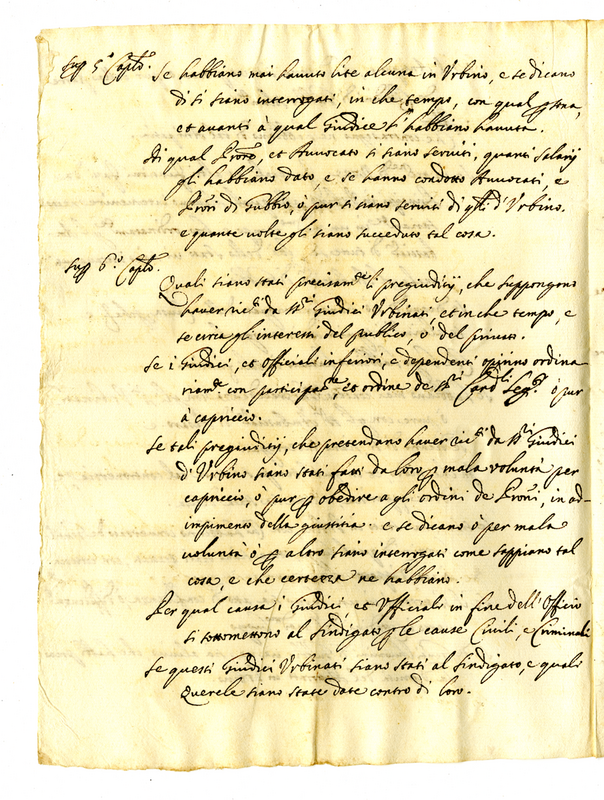 Sup. 5.° Capit.°
Se habbiano mai havuto lite alcuna in Urbino, e se dicano
di sì siano interrogati, in che tempo, con qual psona,
et avanti à qual Giudice l'habbiano havuta.
Di qual Prore, et Avvocato si siano serviti, quanti salarij
gli habbiano dato, e se hanno condotto Avvocati, e
Prori di Gubbio, ò pur si siano serviti di qlli d'Urbino.
e quante volte gli siano succeduto tal cosa.
Sup. 6.° Capit.°
Quali siano stati precisamte li pregiuditij, che suppongono
haver ricti da Giudici Urbinati, et in che tempo, e
se circa gli interessi del publico, ò del privato.
Se i Giudici, et Officiali inferiori, e dependenti opinino ordina-
riamte con participatne, et ordine de Cardli Legti ò pur
à capriccio.
Se tali pregiuditij, che pretendano haver ricti da Giudici
d'Urbino siano stati fatti da loro p mala voluntà per
capriccio, ò pur p obedire a gli ordini de Proni, in ad-
impimento della giustitia. e se dicano ò per mala
voluntà ò p altro siano interrogati come sappiano tal
cosa, e che certezza ne habbiano.
Per qual causa i Giudici, et Ufficiali in fine dell'Officio
si sottomettono al Sindigato p le cause Civili, e Criminali
Se questi Giudici Urbinati siano stati al Sindigato, e quali
Querele siano state date contro di loro.